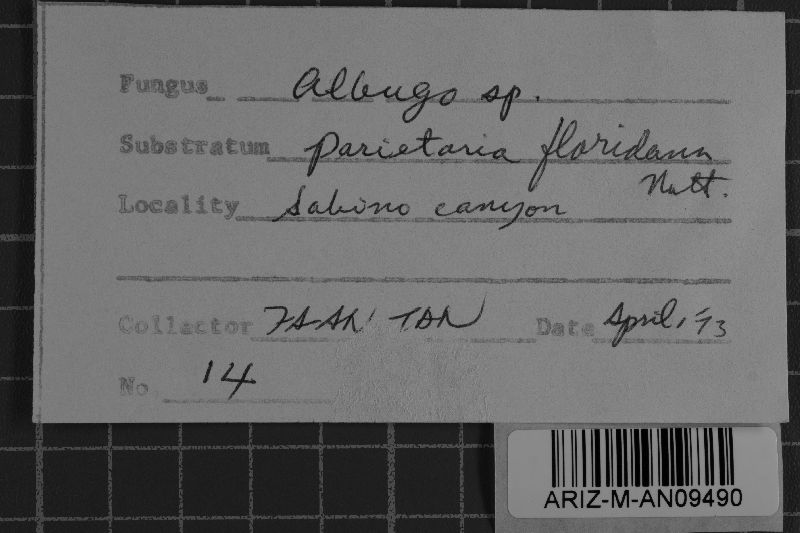 Fungus Albugo sp.
Substratum Parietaria floridana
Nutt.
Locality Sabino canyon
Collector TAN Date April, '73
No. 14
ARIZ-M-AN09490